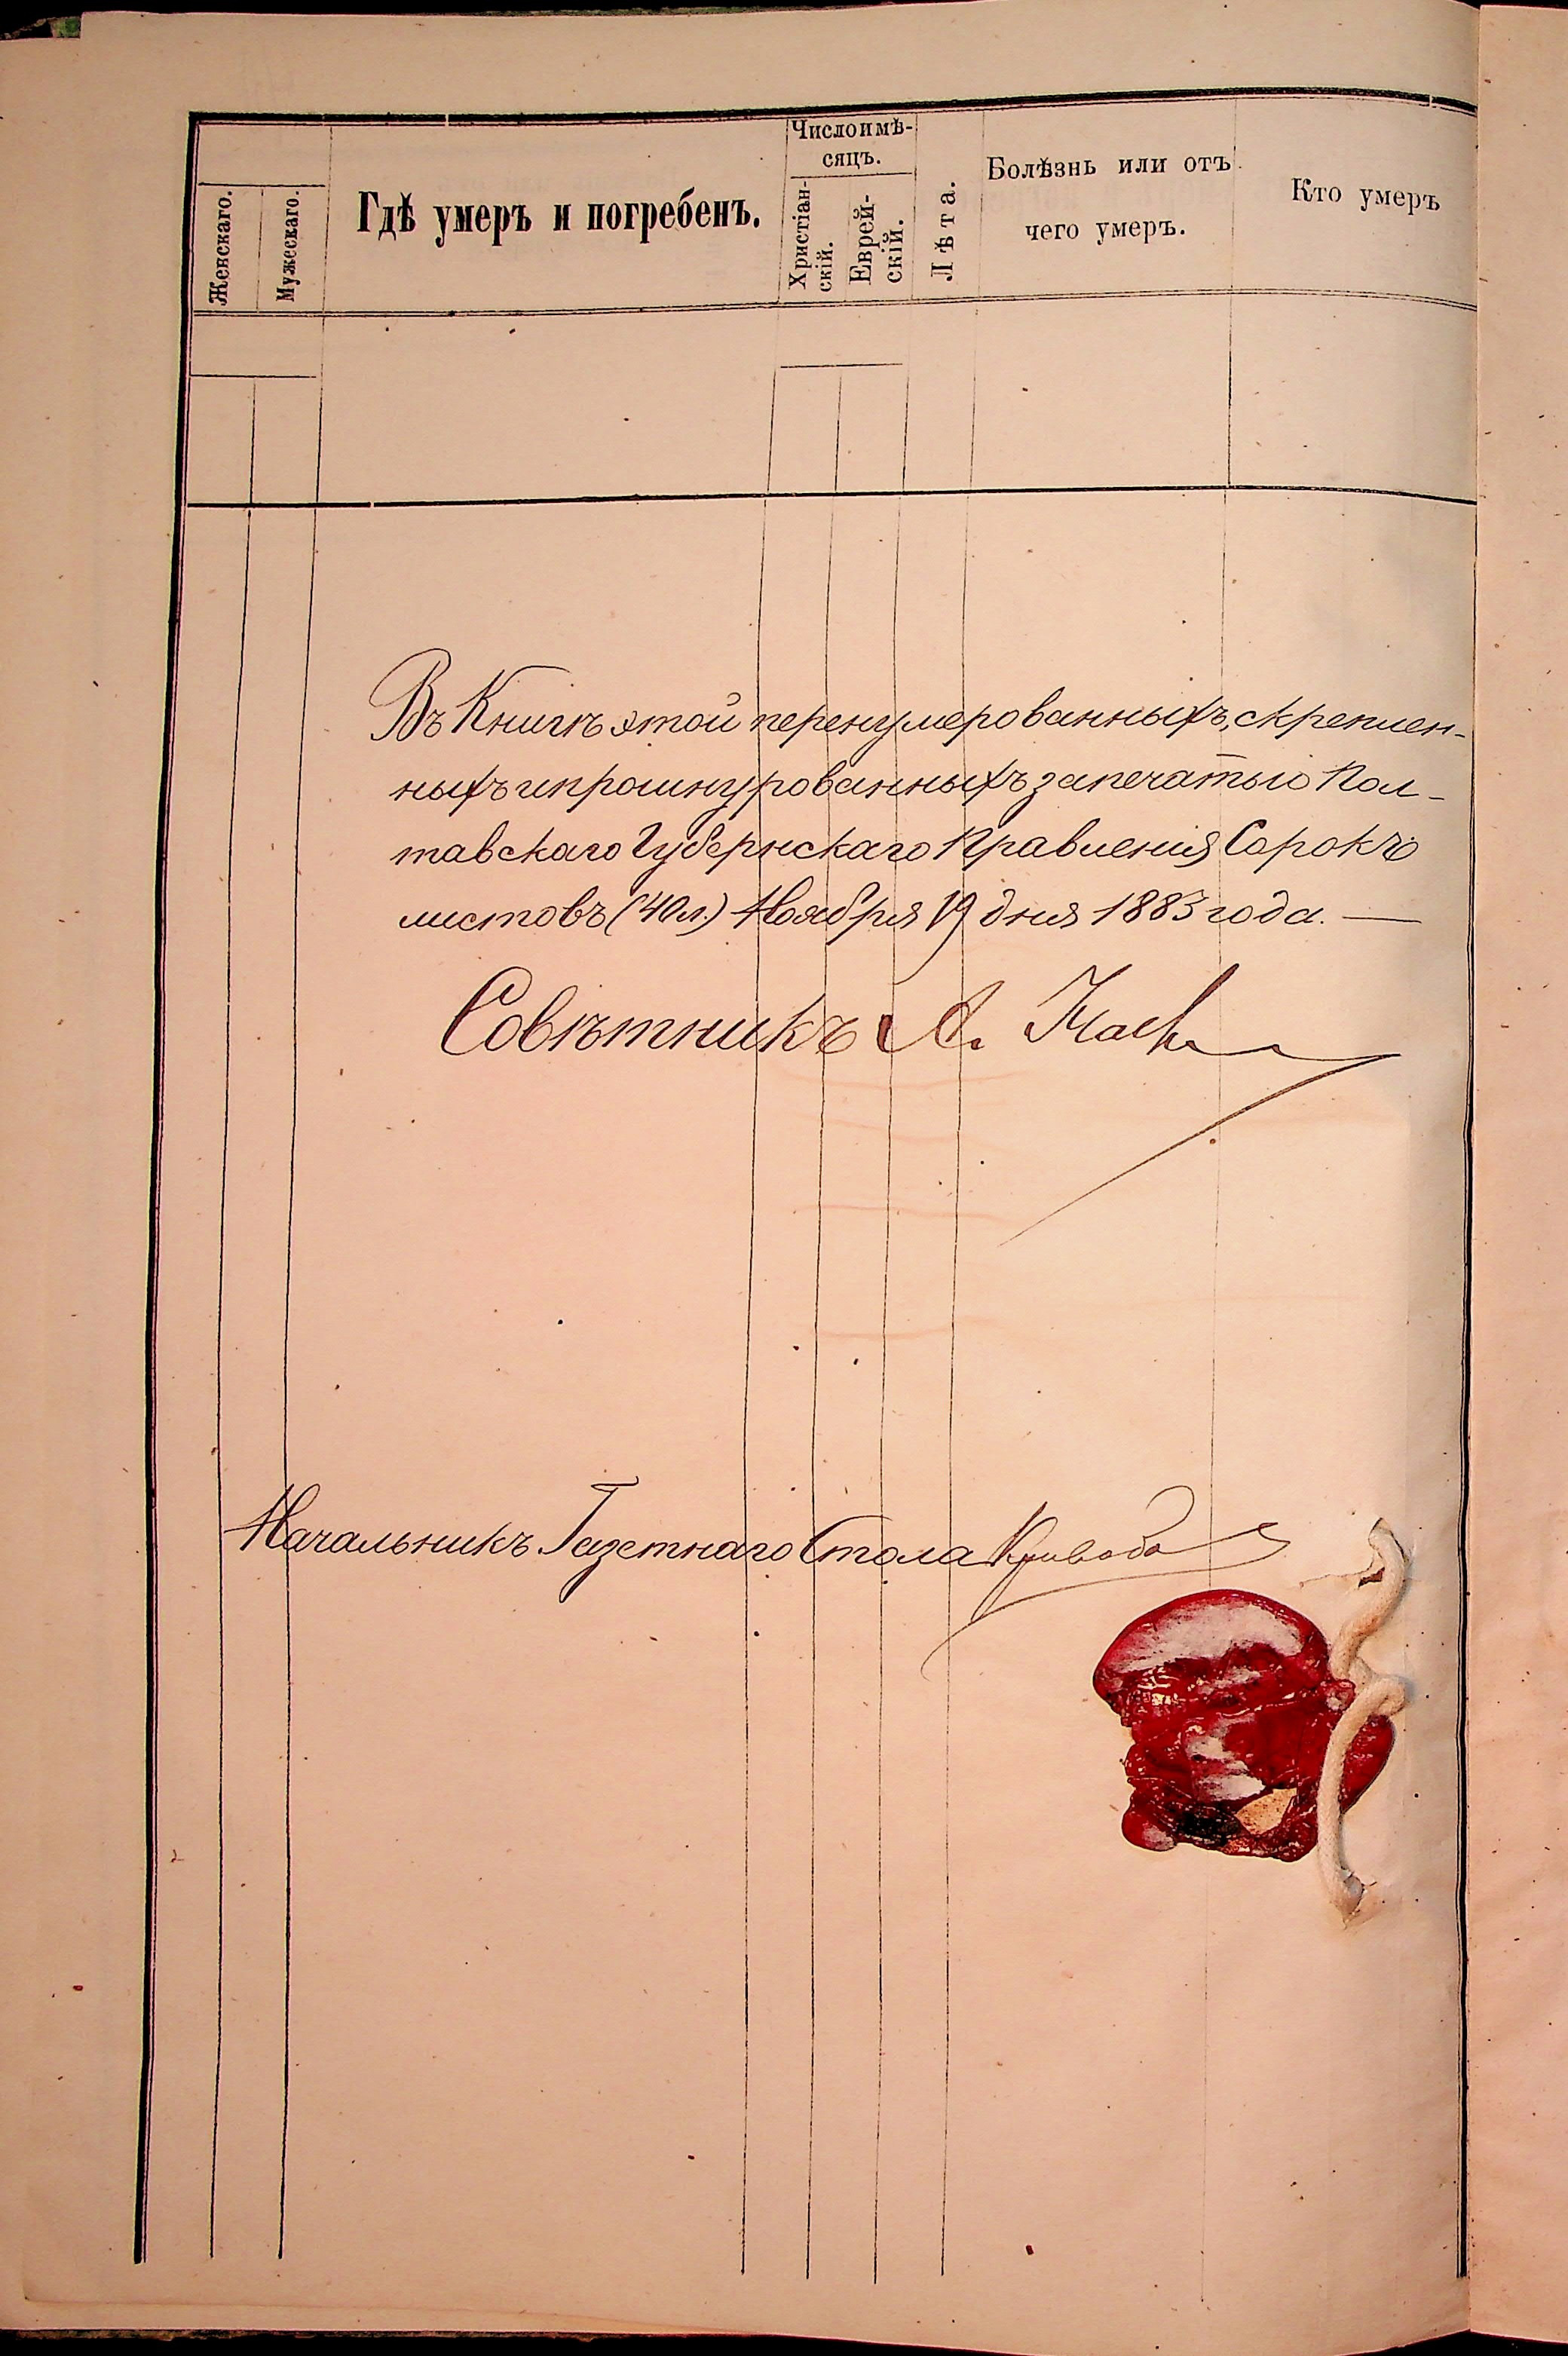 Женскаго.
Мужескаго.
Гдѣ умеръ и погребенъ.
Число и мѣ-
сяцъ.
Христіан-
скій.
Еврей-
скій.
Лѣта.
Болѣзнь или отъ
чего умеръ.
Кто умеръ
Въ Книгѣ этой перенумерованныхъ, скреплен-
ныхъ и прошнурованныхъ за печатью Пол-
тавскаго Губернскаго Правления Сорокъ
листовъ (40 л.) Ноября 19 дня 1883 года. —
Совѣтникъ А.
Начальникъ Газетнаго Стола